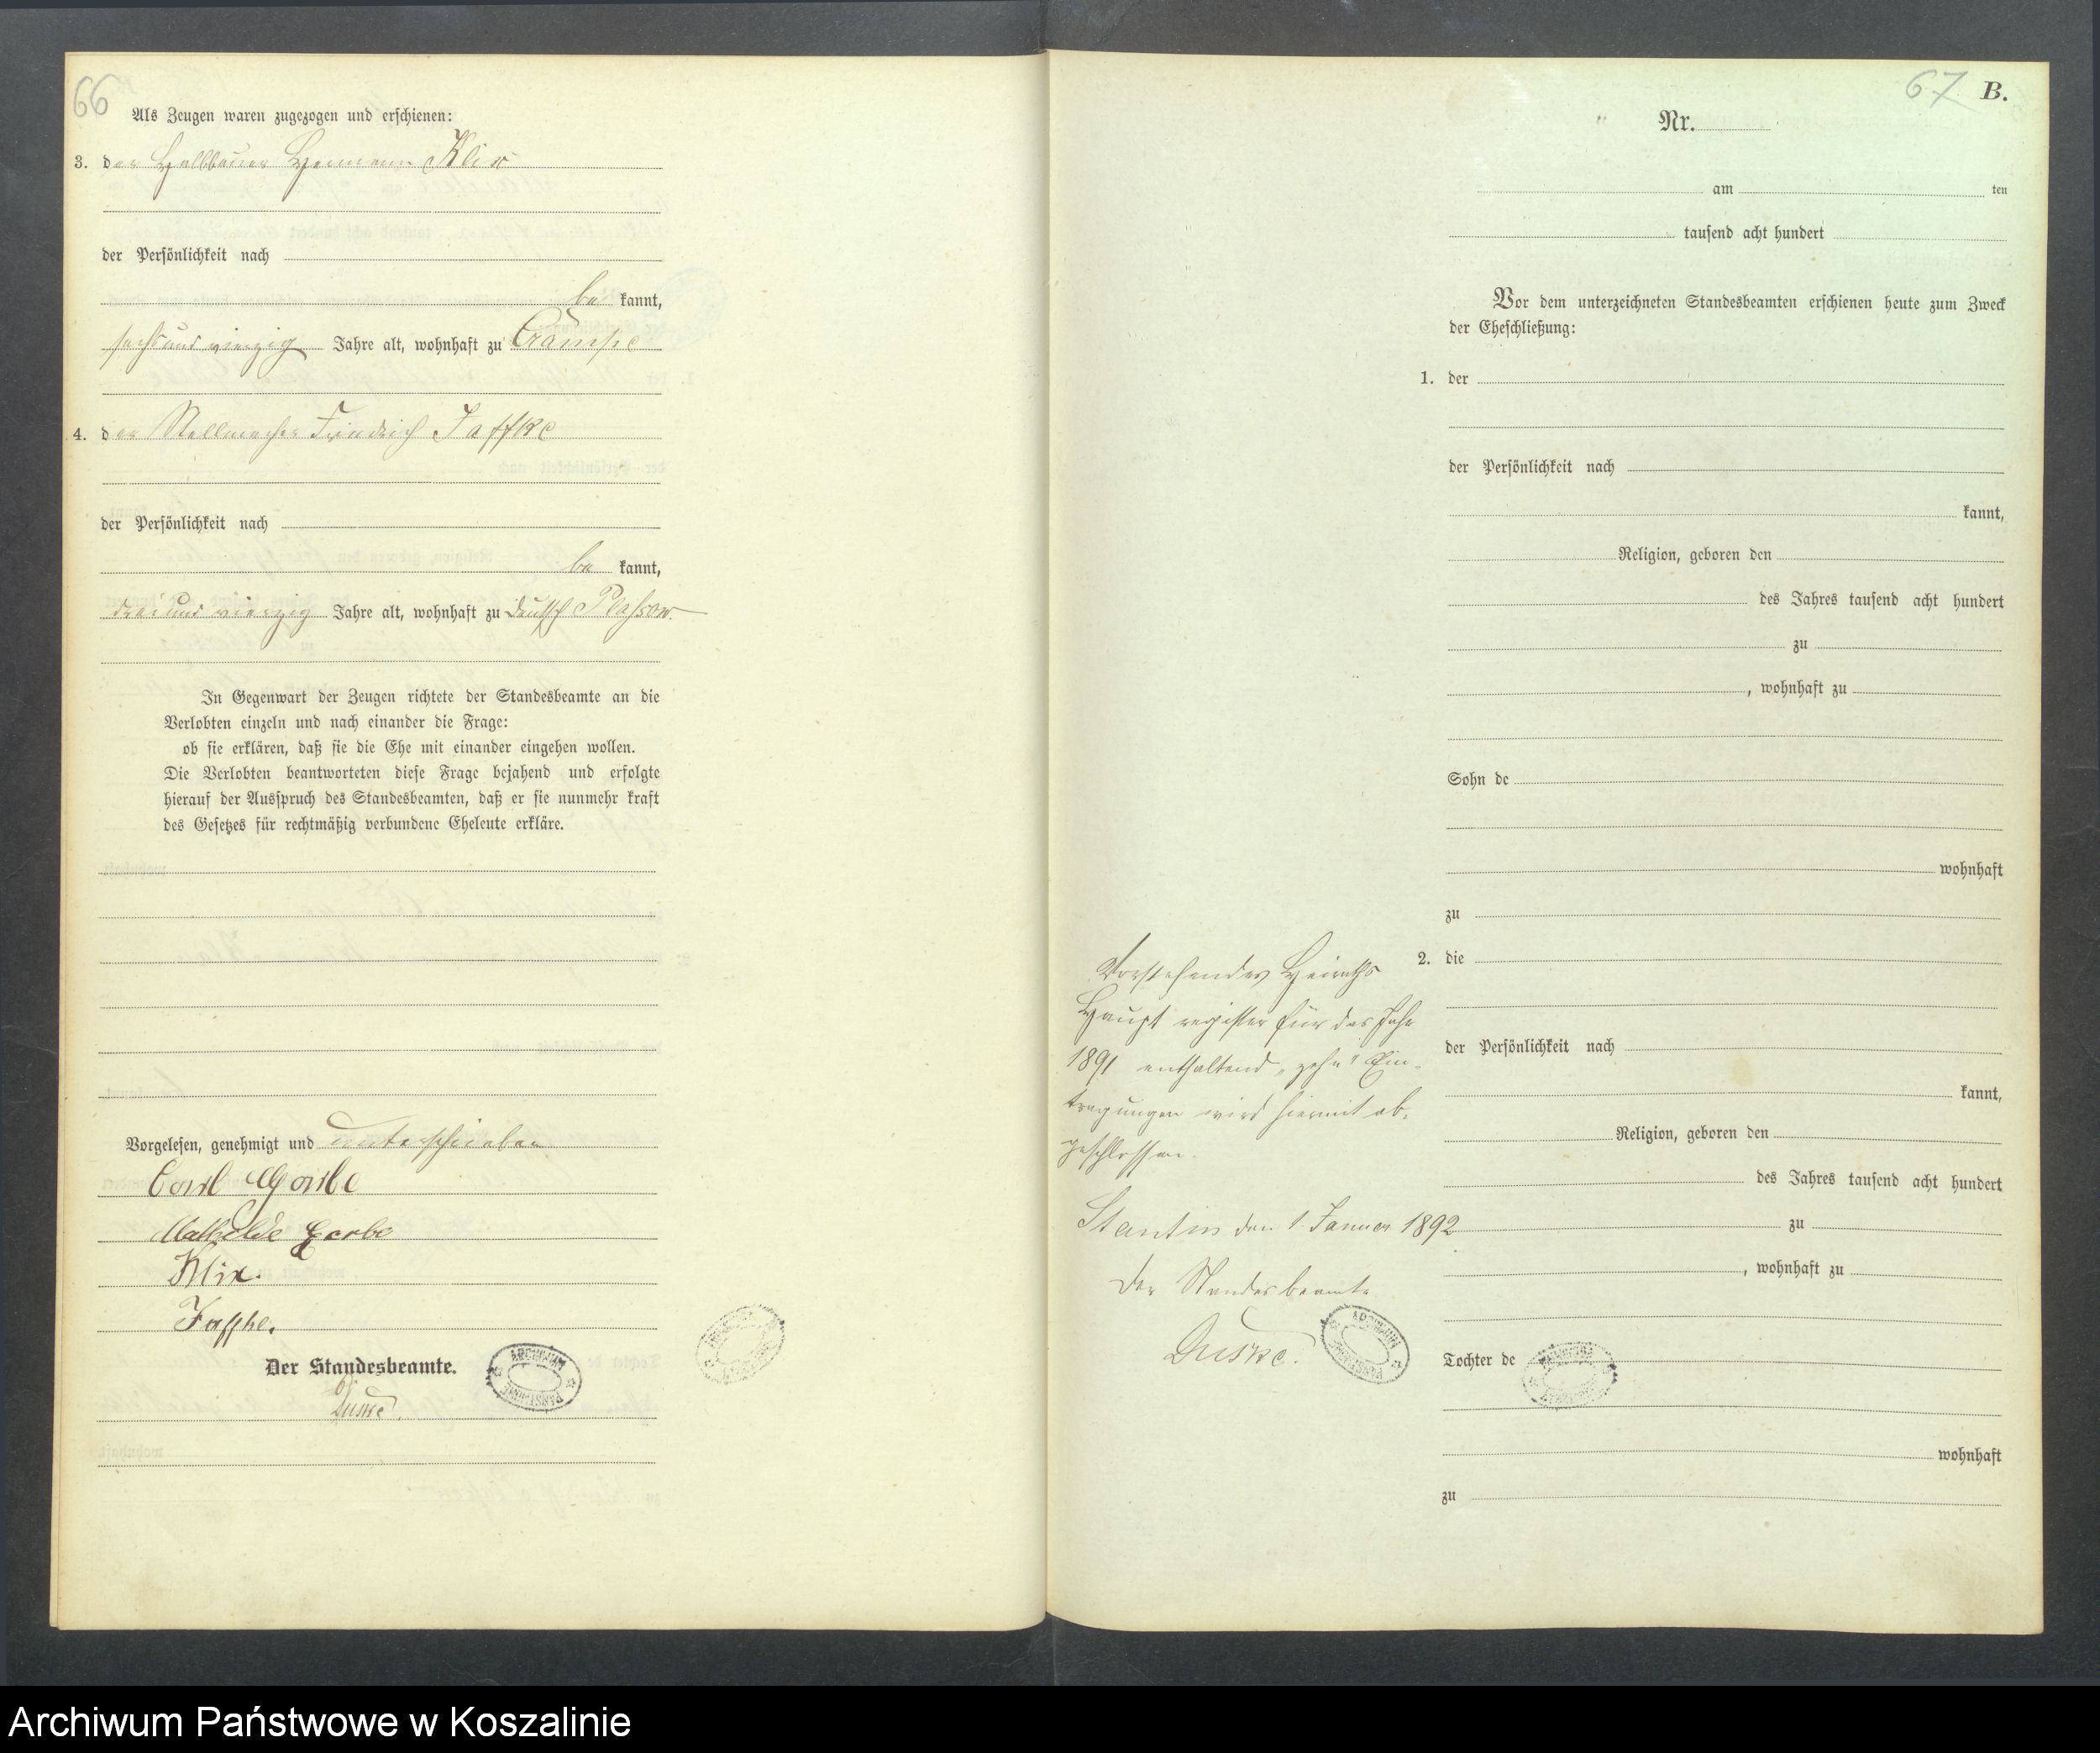 66
Als Zeugen waren zugezogen und erschienen:
3. der Halbbauer Hermann Klix
der Persönlichkeit nach
be kannt,
sechsundvierzig Jahre alt, wohnhaft zu Crampe
4. der Stellmacher Friedrich Jaffke
der Persönlichkeit nach
be kannt,
dreiundvierzig Jahre alt, wohnhaft zu deutsch Plassow
In Gegenwart der Zeugen richtete der Standesbeamte an die
Verlobten einzeln und nach einander die Frage:
ob sie erklären, daß sie die Ehe mit einander eingehen wollen.
Die Verlobten beantworteten diese Frage bejahend und erfolgte
hierauf der Ausspruch des Standesbeamten, daß er sie nunmehr kraft
des Gesetzes für rechtmäßig verbundene Eheleute erkläre.
Vorgelesen, genehmigt und unterschrieben
Carl
Mathilde
Klix.
Jaffke.
Der Standesbeamte.
Duske.
67 B.
Nr.
am ten
tausend acht hundert
Vor dem unterzeichneten Standesbeamten erschienen heute zum Zweck
der Eheschließung:
1. der
der Persönlichkeit nach
kannt,
Religion, geboren den
des Jahres tausend acht hundert
zu
, wohnhaft zu
Sohn de
wohnhaft
zu
2. die
der Persönlichkeit nach
kannt,
Religion, geboren den
des Jahres tausend acht hundert
zu
, wohnhaft zu
Tochter de
wohnhaft
zu
Vorstehendes Heiraths
Haupt register für das Jahr
1891 enthaltend „zehn" Ein-
tragungen wird hiermit ab-
geschlossen.
Stantin den 1. Januar 1892
Der Standesbeamte
Duske.
ARCHIWUM
PAŃSTWOWE
Archiwum Państwowe w Koszalinie